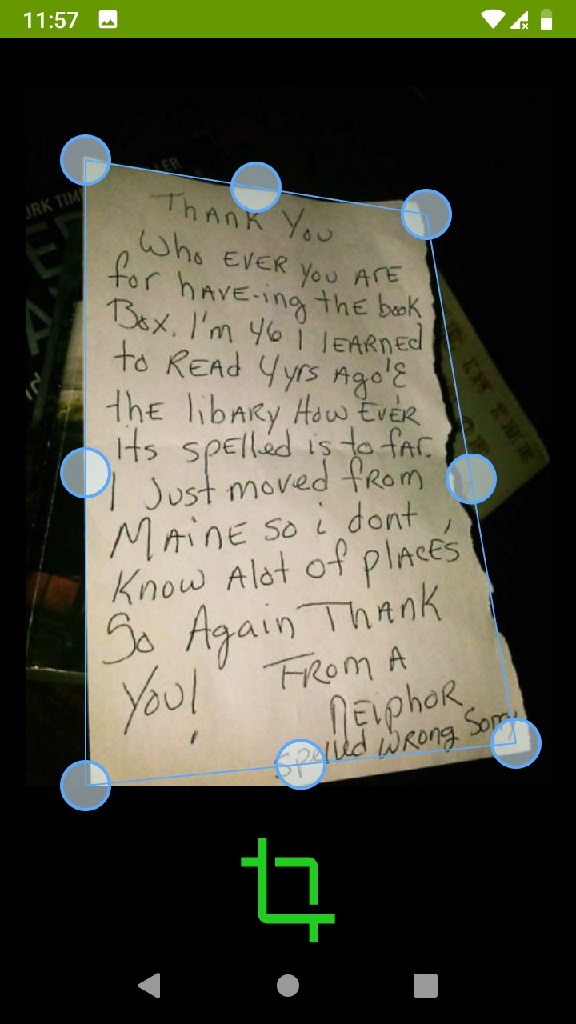 11:57
LER
URK TIM
Thank You
Who EVER you ARE
for hAVE-ing the book
Box. I'm 46 I lEARNED
to READ 4yrs Ago'&
thE libARY How EVER
its spElled is to fAR.
I Just moved fRom
MAiNE so i dont
Know Alot of plAcE's
So Again ThANK
You! From A
NEiphoR
Spelled WRong Sorry